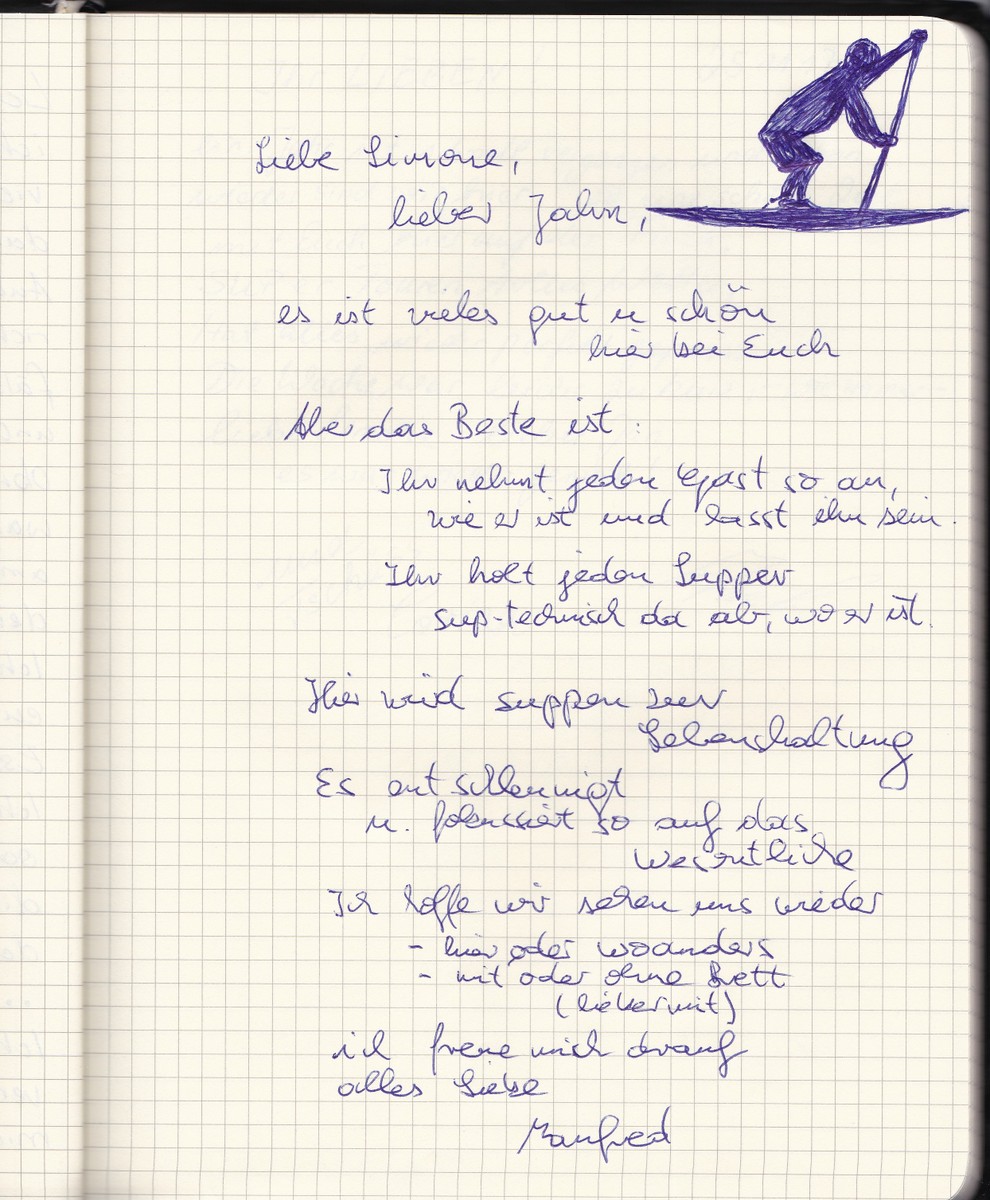 Liebe Simone,
lieber Jahn,
es ist vieles gut u schön
hier bei Euch
Aber das Beste ist:
Ihr nehmt jeden Gast so an,
wie er ist und lasst ihn sein.
Ihr holt jeden Supper
sup-technisch da ab, wo er ist.
Hier wird suppen zur
Lebenshaltung
Es entschleunigt
u. fokussiert so auf das
Wesentliche
Ich hoffe wir sehen uns wieder
- hier oder woanders
- mit oder ohne Brett
(lieber mit)
ich freue mich drauf
alles Liebe
Manfred